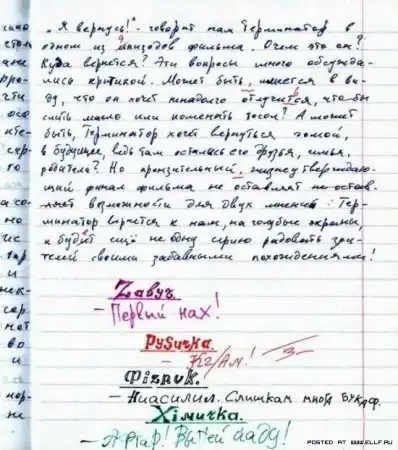 „Я вернусь!" - говорит нам Терминатор в
одном из эпизодов фильма. О чем это он?
Куда вернется? Эти вопросы много обсужда-
лись критикой. Может быть, имеется в ви-
ду, что он хочет ненадолго отлучится, что бы
слить масло или поменять тосол? А может
быть, Терминатор хочет вернуться домой,
в будущее, ведь там остались его друзья, семья,
родители? Но пронзительный, жизнеутверждаю-
щий финал фильма не оставляет не остав-
ляет возможности для двух мнений: Тер-
минатор вернется к нам, на голубые экраны,
и будет ещё не одну серию радовать зри-
телей своими забавными похождениями!
Zавуч.
- Первый нах!
РуSичка.
- КГ/Ам! 3-
Фізрuk.
- Ниасилил. Слишкам мной букаф.
Хімичка.
- Афтар! Выпей йаду!
POSTED AT WWW.ELLF.RU